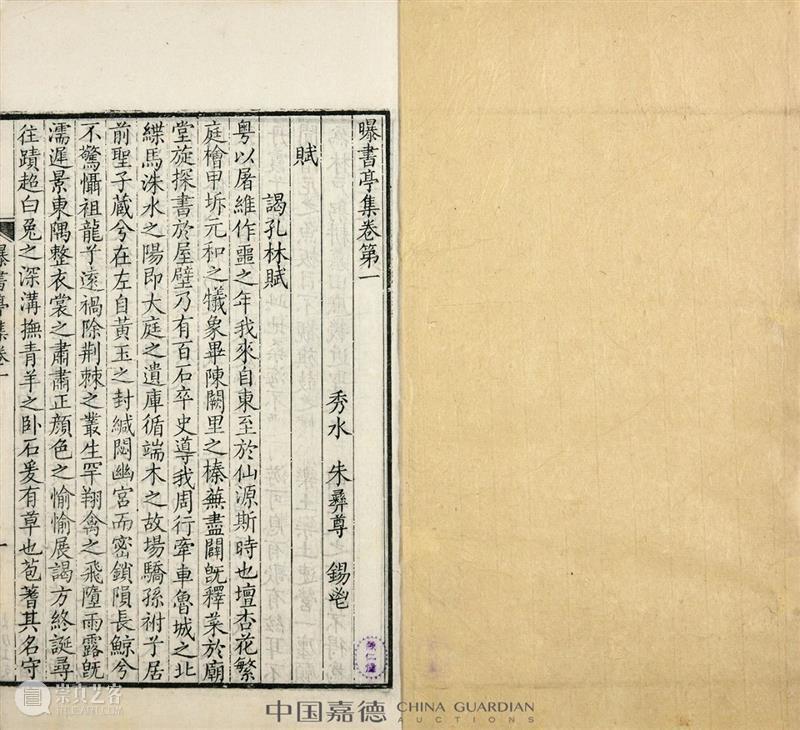 曝書亭集卷第一
秀水 朱彝尊 錫鬯
賦
謁孔林賦
粵以屠維作噩之年我來自東至於仙源斯時也壇杏花繁
庭檜甲坼元和之犧象畢陳闕里之榛蕪盡闢旣釋菜於廟
堂旋探書於屋壁乃有百石卒史導我周行牽車魯城之北
緤馬洙水之陽即大庭之遺庫循端木之故場驕孫祔子居
前聖子蔵兮在左自黃玉之封緘閟幽宮而密鎖隕長鯨兮
不驚懾祖龍子逺禍除荆棘之叢生罕翔禽之飛墮雨露旣
濡遲景東隅整衣裳之肅肅正顔色之愉愉展謁方終誕尋
往蹟超白兔之深溝撫青羊之卧石爰有草也苞蓍其名守
曝書亭集卷一
一
崇真艺客
中国嘉德 CHINA GUARDIAN
AUCTIONS